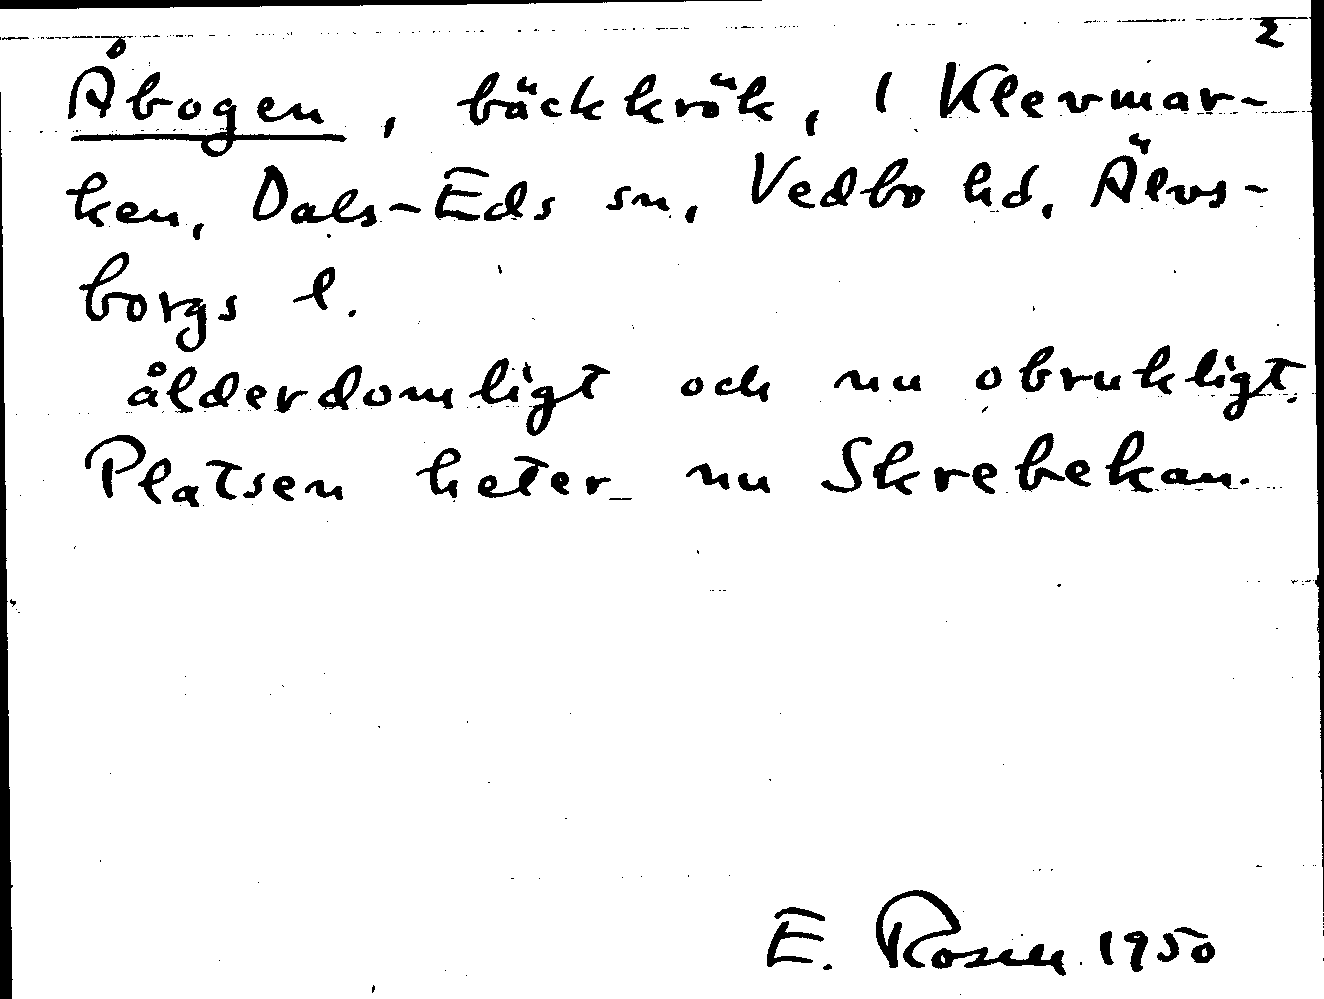 2
Åbogen, bäckkrök, i Klevmar-
ken, Dals-Eds sn, Vedbo hd, Älvs-
borgs l.
ålderdomligt och nu obrukligt.
Platsen heter nu Skrebekan.
E. Rosen 1950